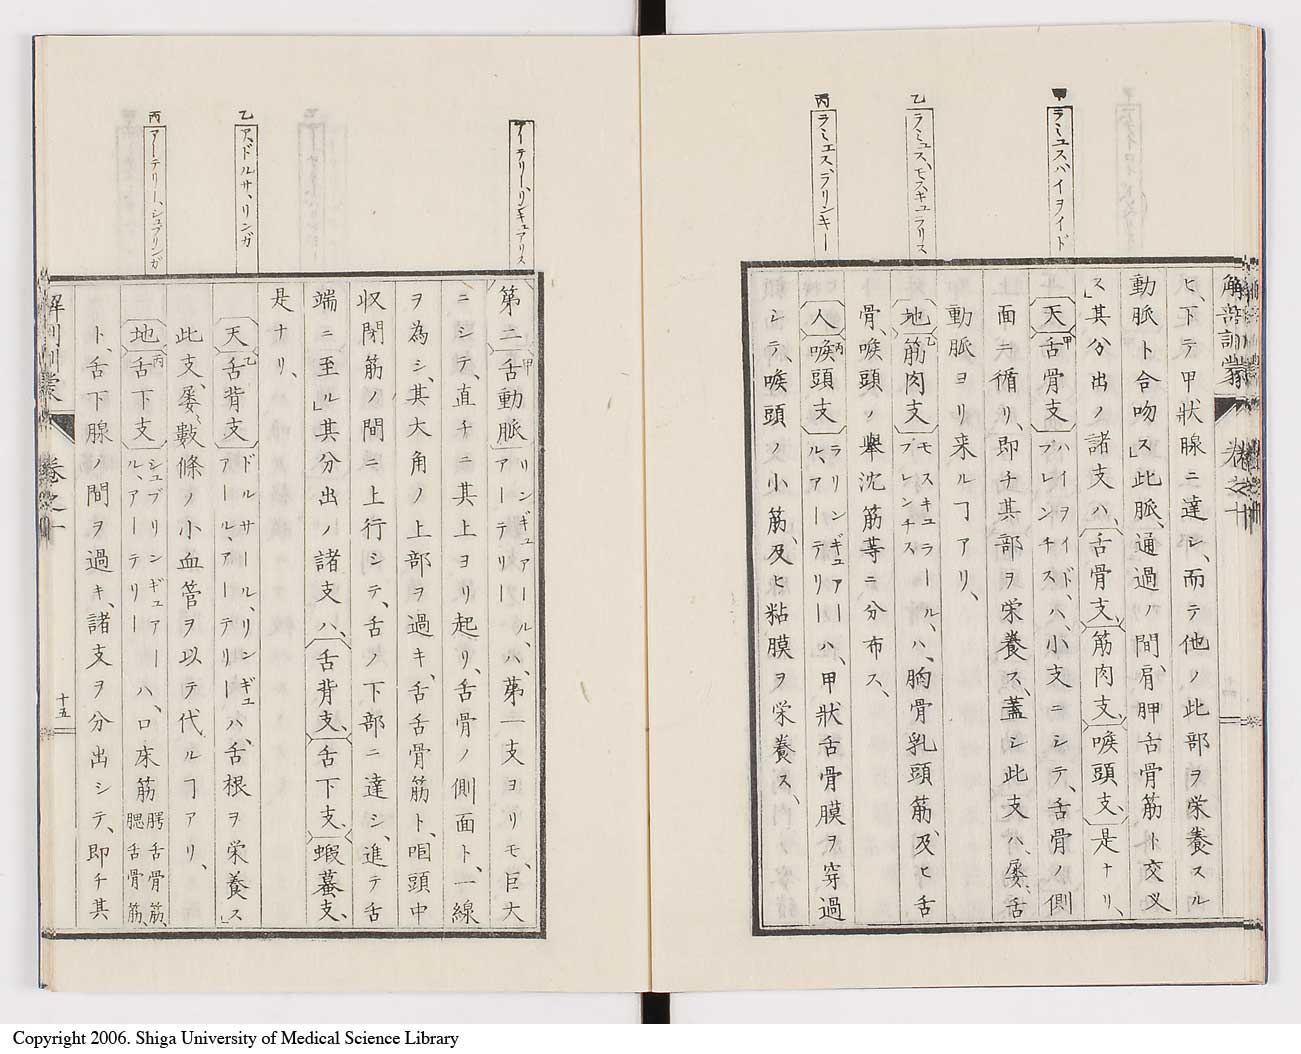 甲
ラミユス、ハイヲイド
乙
ラミユス、モスキユラリス
丙
ラミュス、ラリンキー
解剖訓蒙
巻之十
ヒ、下テ甲状腺ニ達シ、而テ他ノ此部ヲ栄養スル
動脈ト合吻ス」此脈、通過ノ間、肩胛舌骨筋ト交叉
ス」其分出ノ諸支ハ、舌骨支、筋肉支、喉頭支、是ナリ、
天甲舌骨支ハイヲイド、ブレンチスハ、小支ニシテ、舌骨ノ側
面ニ循リ、即チ其部ヲ栄養ス、蓋シ此支ハ、屡、舌
動脈ヨリ来ルヿアリ、
地乙筋肉支モスキュラール、ブレンチスハ、胸骨乳頭筋、及ヒ舌
骨、喉頭ノ挙沈筋等ニ分布ス、
人丙喉頭支ラリンギュアール、アーテリーハ、甲状舌骨膜ヲ穿過
シテ、喉頭ノ小筋、及ヒ粘膜ヲ栄養ス、
アーテリー、リンキュアリス
乙
ア、ドルサ、リンガ
丙
アーテリー、シュブリンガ
第二甲舌動脈リンギュアール、アーテリーハ、第一支ヨリモ、巨大
ニシテ、直チニ其上ヨリ起リ、舌骨ノ側面ト、一線
ヲ為シ、其大角ノ上部ヲ過キ、舌舌骨筋ト、咽頭中
収閉筋ノ間ニ上行シテ、舌ノ下部ニ達シ、進テ舌
端ニ至ル」其分出ノ諸支ハ、舌背支、舌下支、蝦蟇支、
是ナリ、
天乙舌背支ドルサール、リンギュアール、アーテリーハ、舌根ヲ栄養ス」
此支、屡、數條ノ小血管ヲ以テ代ルヿアリ、
地丙舌下支シュブリンギュアール、アーテリーハ、口床筋腭舌骨筋、腮舌骨筋、
ト、舌下腺ノ間ヲ過キ、諸支ヲ分出シテ、即チ其
解剖訓蒙
巻之十
十五
Copyright 2006. Shiga University of Medical Science Library